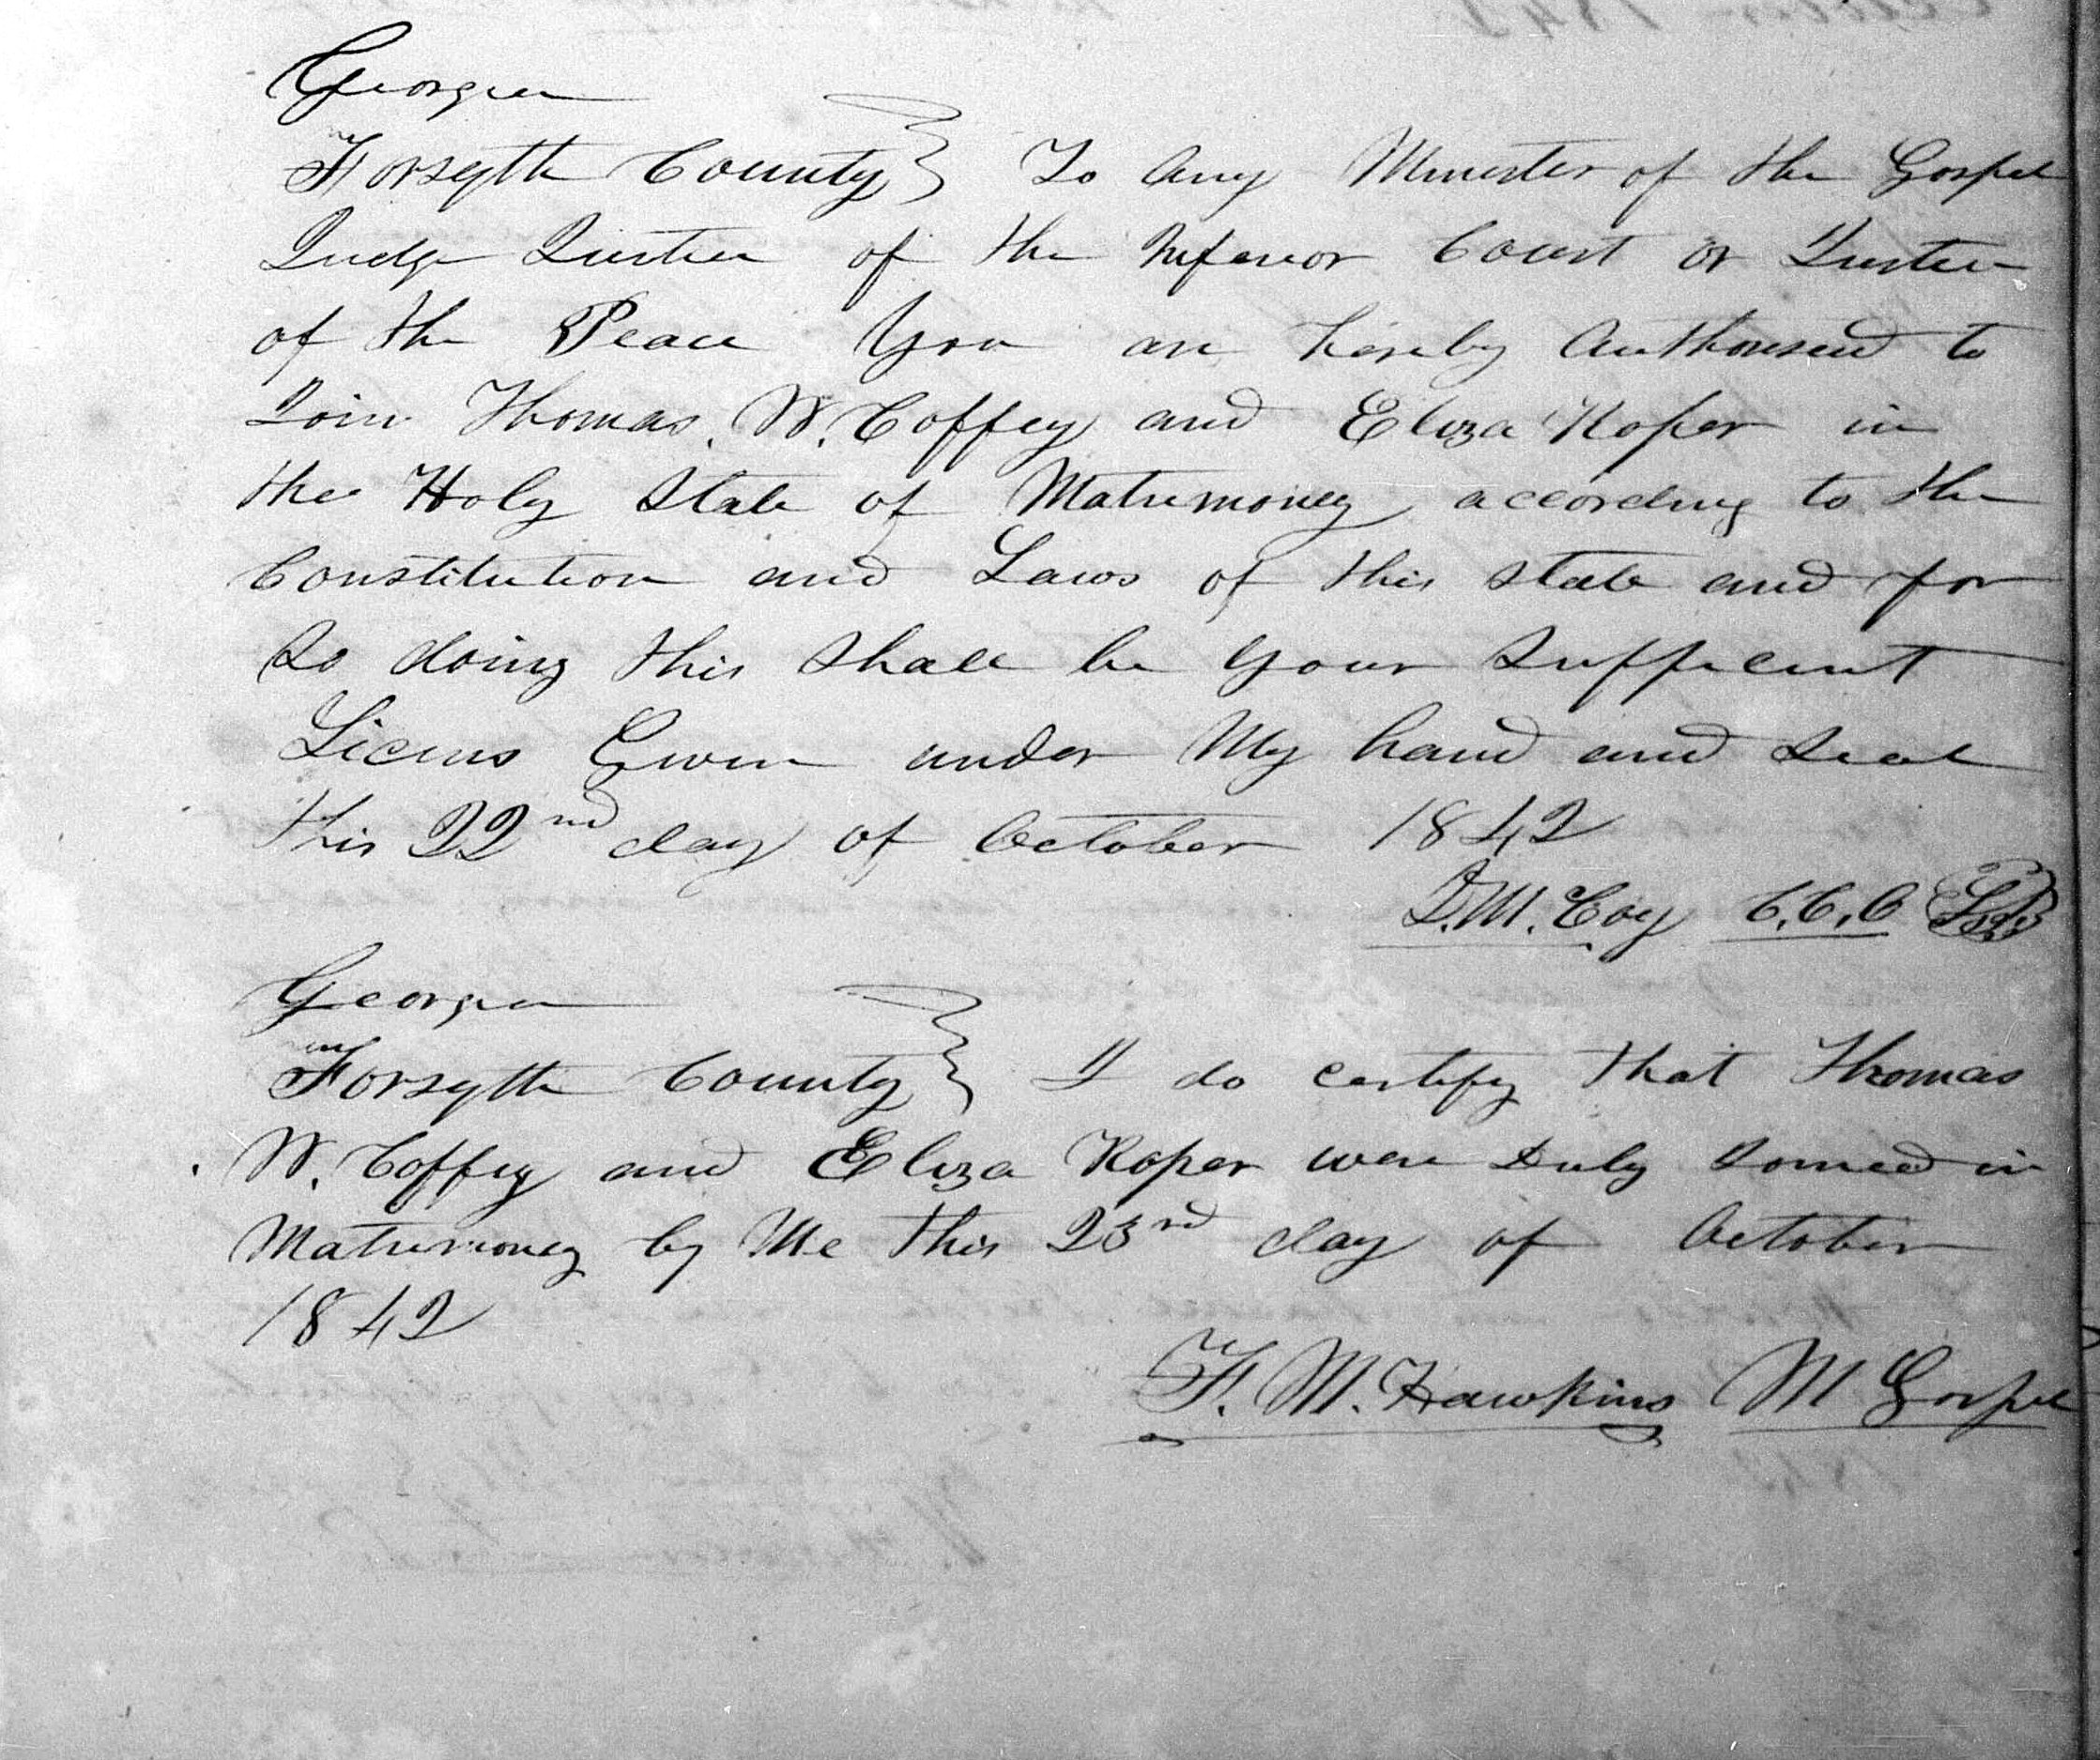 Georgia
Forsyth County } To Any Minister of the Gospel
Judge Justice of the Inferior Court or Justice
of the Peace You are hereby Authorised to
Join Thomas W. Coffey and Eliza Roper in
the Holy State of Matrimoney according to the
Constitution and Laws of this state and for
So doing this Shall be your Sufficient
Licens Given under My hand and Seal
this 22nd day of October 1842
D. M. Coy C.C.O
Georgia
Forsyth County } I do certify that Thomas
W. Coffey and Eliza Roper were Duly Joined in
Matrimoney by Me this 23rd day of October
1842
F. M. Hawkins M Gospel